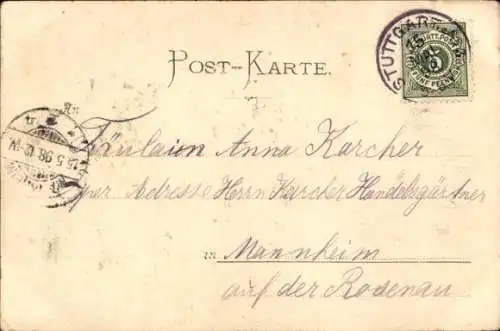 STUTTGART
15
5
FÜNF PFENNIG
POST-KARTE.
An
15.5.98.
Fräulein Anna Karcher
per Adresse Herrn Karcher Handelsgärtner
in Mannheim
auf der Rosenau